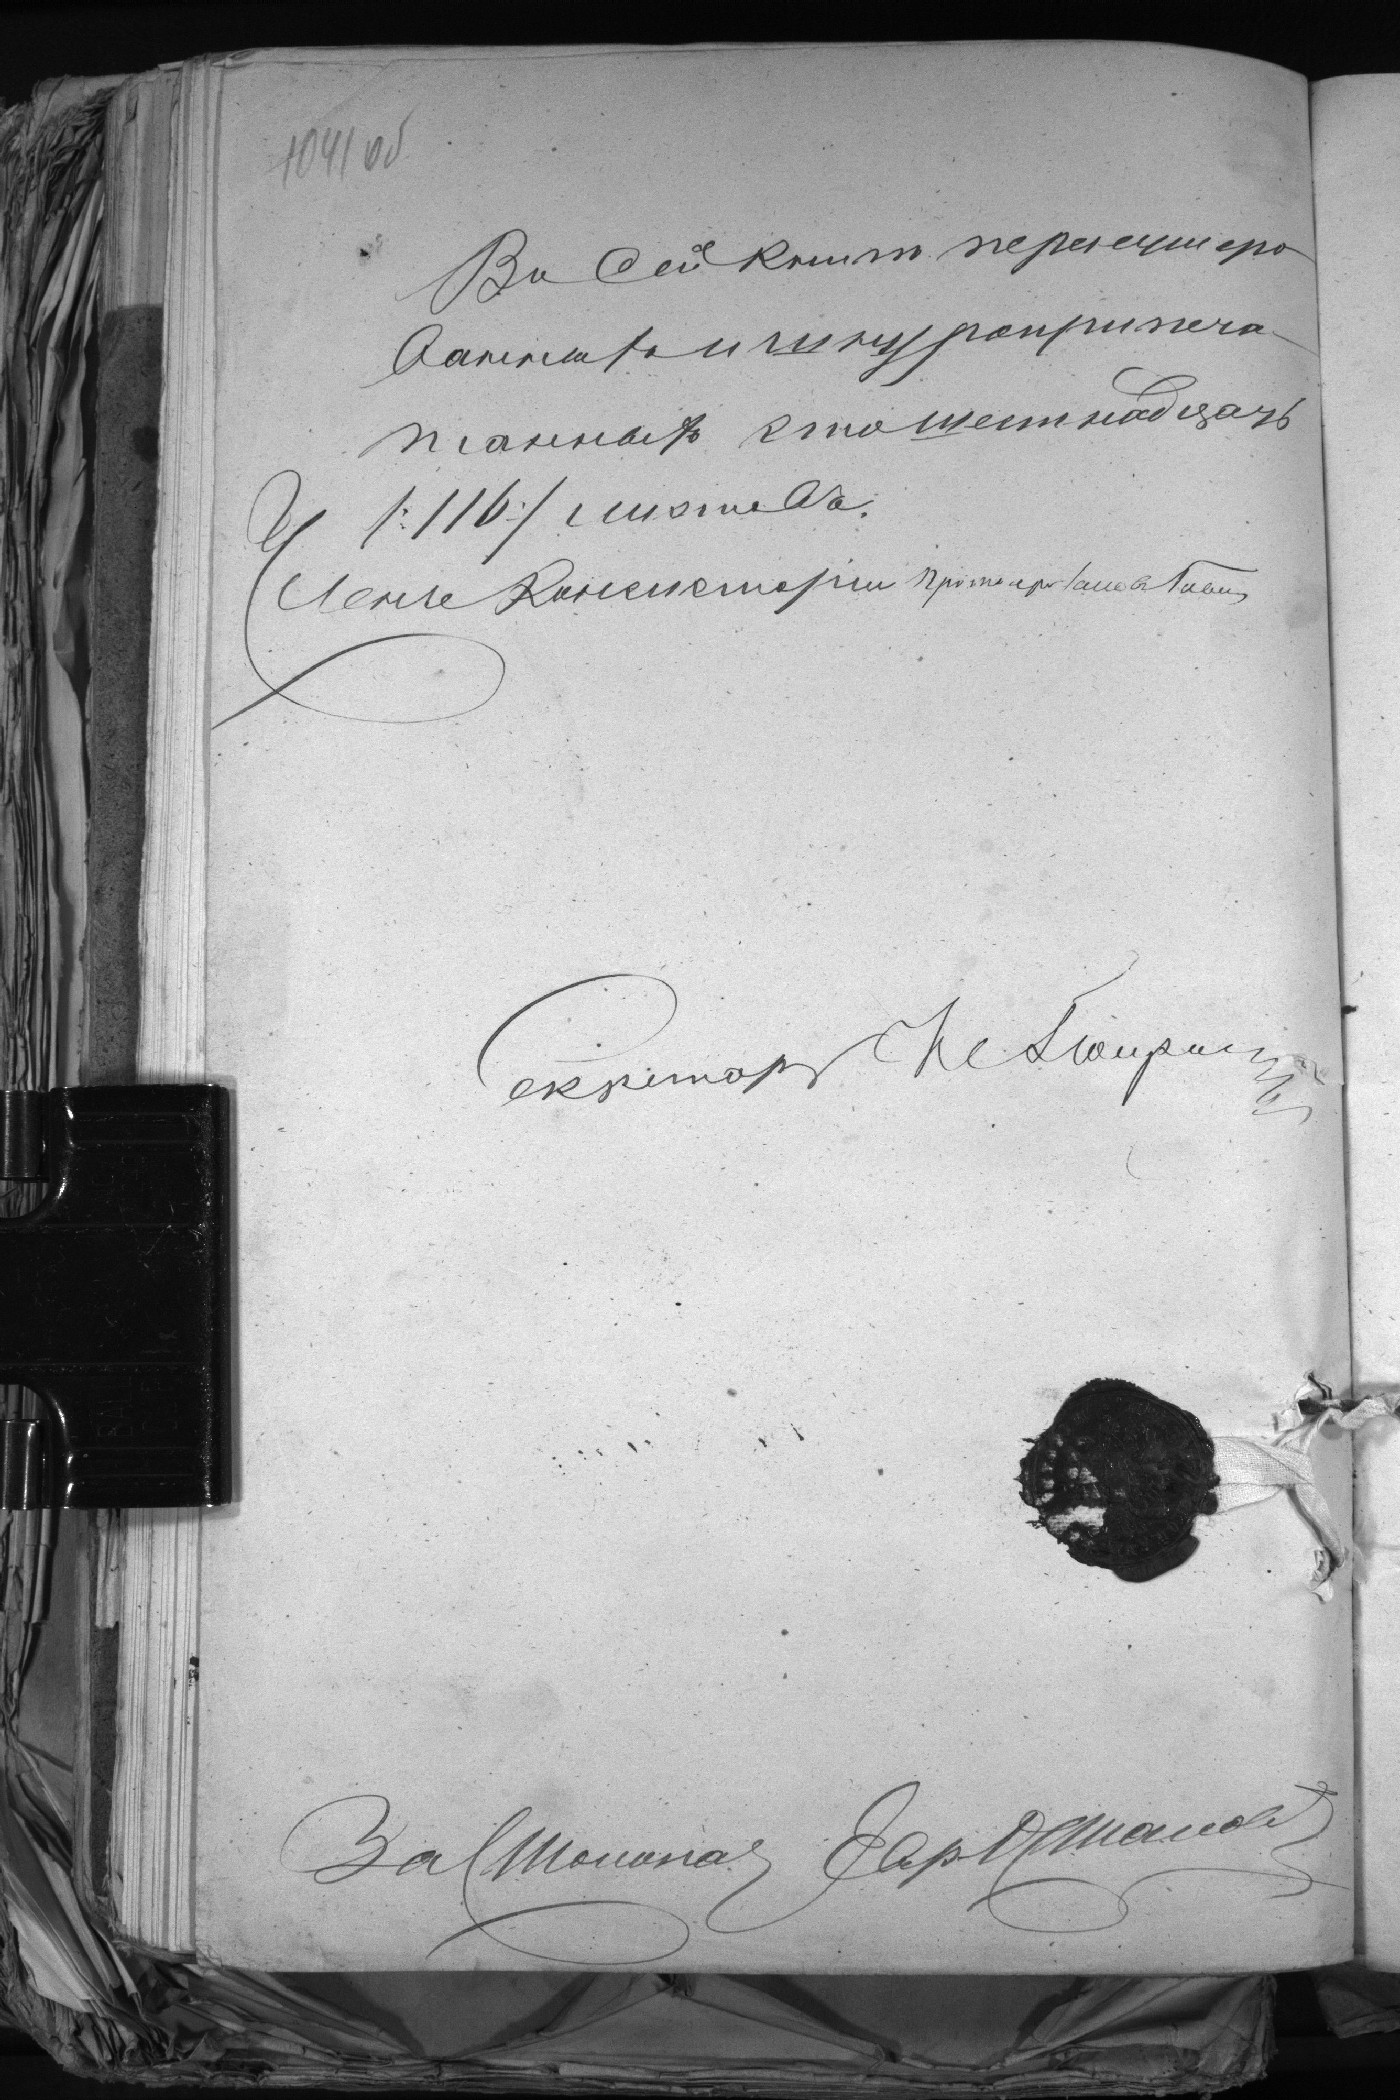 1041 об
Въ сей книгѣ перенумеро
ванныхъ и шнуроприпеча
танныхъ сто шестнадцать
/:116:/ листовъ.
Членъ Консисторіи Протоіерей
Секретарь
За Столонач.